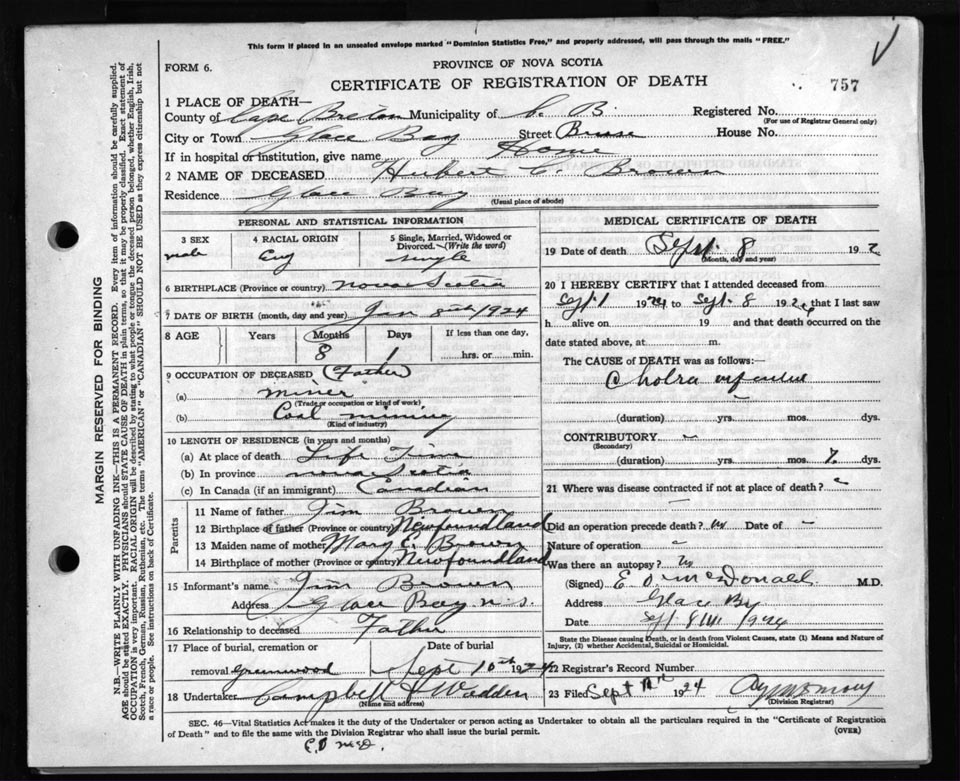 This form if placed in an unsealed envelope marked "Dominion Statistics Free," and properly addressed, will pass through the mails "FREE."
FORM 6.
PROVINCE OF NOVA SCOTIA
CERTIFICATE OF REGISTRATION OF DEATH
757
1 PLACE OF DEATH—
County of Cape Breton Municipality of C. B. Registered No.
(For use of Registrar General only)
City or Town Glace Bay Street House No.
If in hospital or institution, give name Home
2 NAME OF DECEASED Hubert C. Brown
Residence Glace Bay
(Usual place of abode)
PERSONAL AND STATISTICAL INFORMATION
3 SEX male
4 RACIAL ORIGIN Eng
5 Single, Married, Widowed or Divorced.—(Write the word) single
6 BIRTHPLACE (Province or country) Nova Scotia
7 DATE OF BIRTH (month, day and year) Jan 8th 1924
8 AGE Years Months Days If less than one day,
8 1 hrs. or min.
9 OCCUPATION OF DECEASED (Father)
(a) miner
(Trade or occupation or kind of work)
(b) Coal mining
(Kind of industry)
10 LENGTH OF RESIDENCE (in years and months)
(a) At place of death Life Time
(b) In province Nova Scotia
(c) In Canada (if an immigrant) Canadian
Parents
11 Name of father Jim Brown
12 Birthplace of father (Province or country) Newfoundland
13 Maiden name of mother Mary E. Brown
14 Birthplace of mother (Province or country) Newfoundland
15 Informant's name Jim Brown
Address Glace Bay N.S.
16 Relationship to deceased Father
17 Place of burial, cremation or Date of burial
removal Greenwood Sept 10th 1924
18 Undertaker Campbell & Wadden
(Name and address)
MEDICAL CERTIFICATE OF DEATH
19 Date of death Sept. 8 192
(Month, day and year)
20 I HEREBY CERTIFY that I attended deceased from
Sept 1 1924 to Sept. 8 1924 that I last saw
h alive on 19 and that death occurred on the
date stated above, at m.
The CAUSE of DEATH was as follows:—
Cholra
(duration) yrs. mos. dys.
CONTRIBUTORY –
(Secondary)
(duration) yrs. mos. 7 dys.
21 Where was disease contracted if not at place of death?
Did an operation precede death? no Date of –
Nature of operation –
Was there an autopsy? no
(Signed) E. O. McDonald M.D.
Address Glace By
Date Sept 8th 1924
State the Disease causing Death, or in death from Violent Causes, state (1) Means and Nature of Injury, (2) whether Accidental, Suicidal or Homicidal.
22 Registrar's Record Number
23 Filed Sept 1924
(Division Registrar)
SEC. 46—Vital Statistics Act makes it the duty of the Undertaker or person acting as Undertaker to obtain all the particulars required in the "Certificate of Registration
of Death" and to file the same with the Division Registrar who shall issue the burial permit.
(OVER)
MARGIN RESERVED FOR BINDING
N.B.—WRITE PLAINLY WITH UNFADING INK—THIS IS A PERMANENT RECORD. Every item of information should be carefully supplied.
AGE should be stated EXACTLY. PHYSICIANS should STATE CAUSE OF DEATH in plain terms, so that it may be properly classified. Exact statement of
OCCUPATION is very important. RACIAL ORIGIN will be described by stating to what people or tongue the deceased person belonged, whether English, Irish,
Scotch, French, German, Russian, Ruthenian, etc. The terms "AMERICAN" or "CANADIAN" SHOULD NOT BE USED as they express citizenship but not
a race or people. See instructions on back of Certificate.